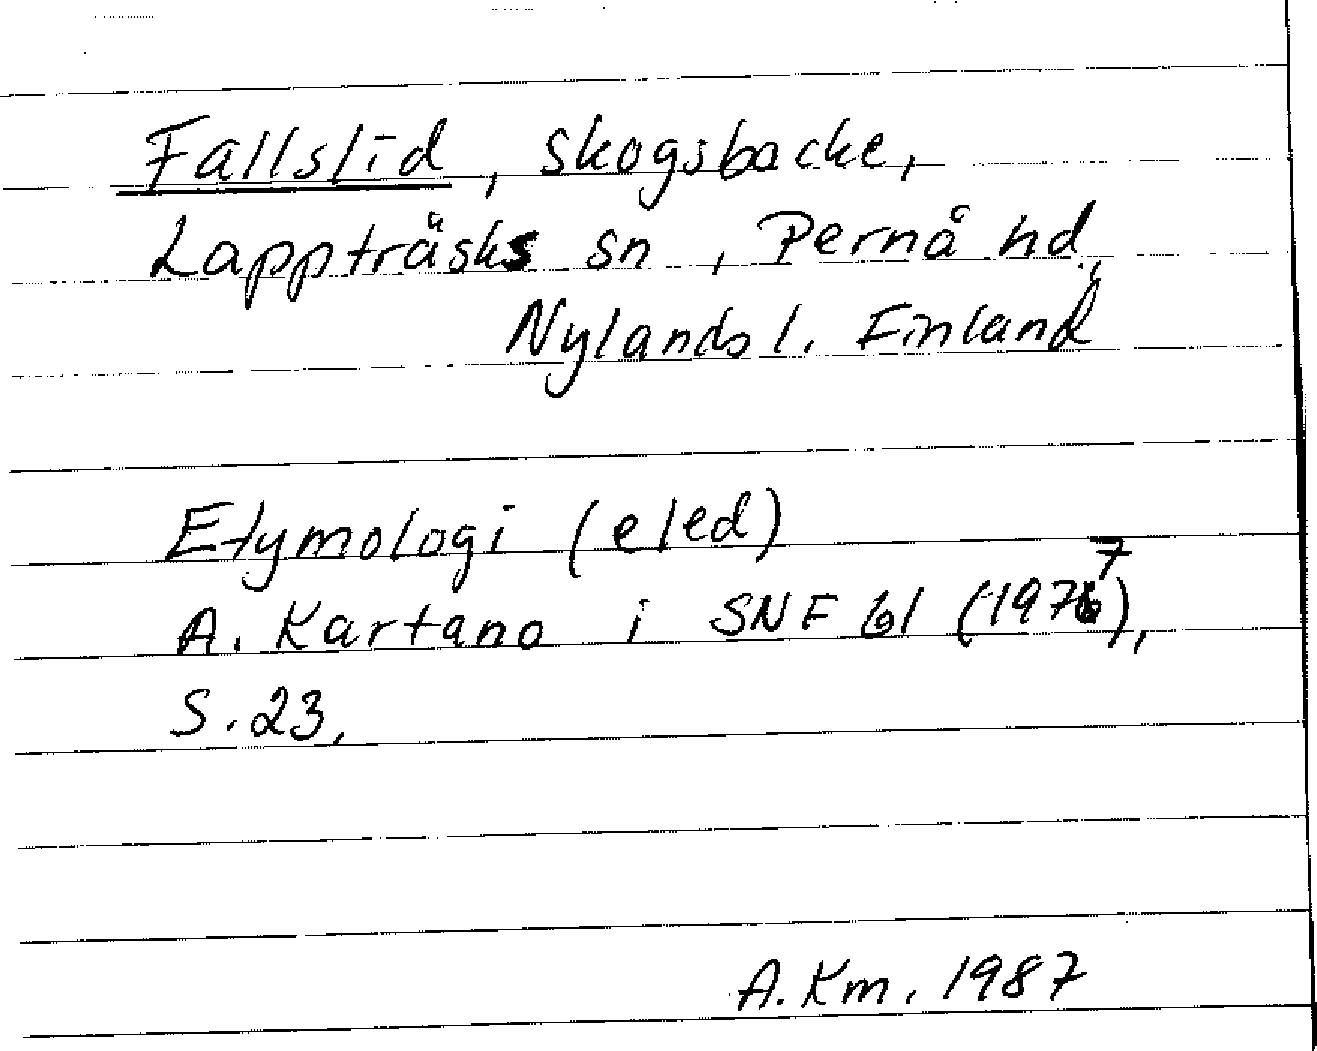 Fallslid, skogsbacke,
Lappträsks sn, Pernå hd,
Nylands l. Finland
Etymologi (eled)
A. Kartano i SNF 61 (1977),
S. 23,
A. Km. 1987